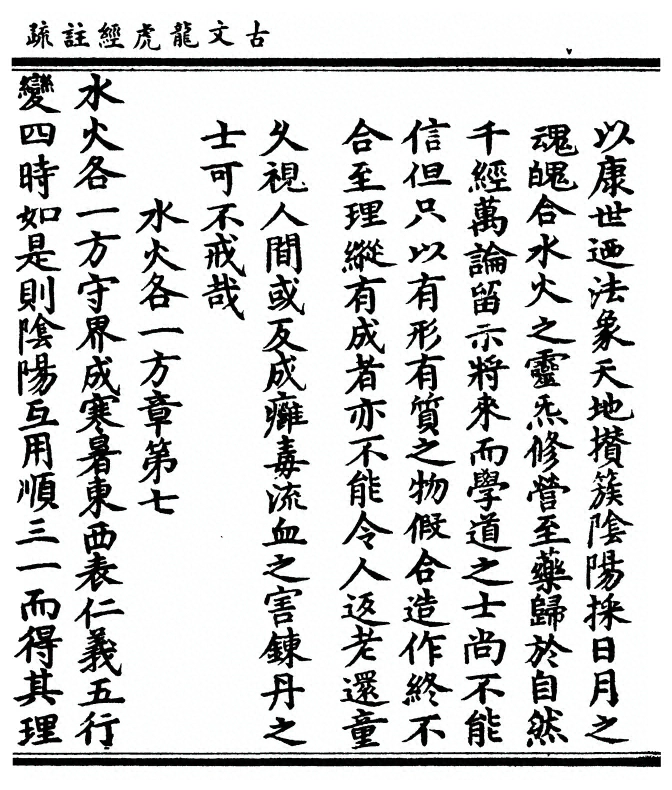 古文龍虎經註疏
以康世廼法象天地攅簇陰陽採日月之
魂魄合水火之靈炁修營至藥歸於自然
千經萬論留示將來而學道之士尚不能
信但只以有形有質之物假合造作終不
合至理縱有成者亦不能令人返老還童
久視人間或反成癰毒流血之害鍊丹之
士可不戒哉
水火各一方章第七
水火各一方守界成寒暑東西表仁義五行
變四時如是則陰陽互用順三一而得其理